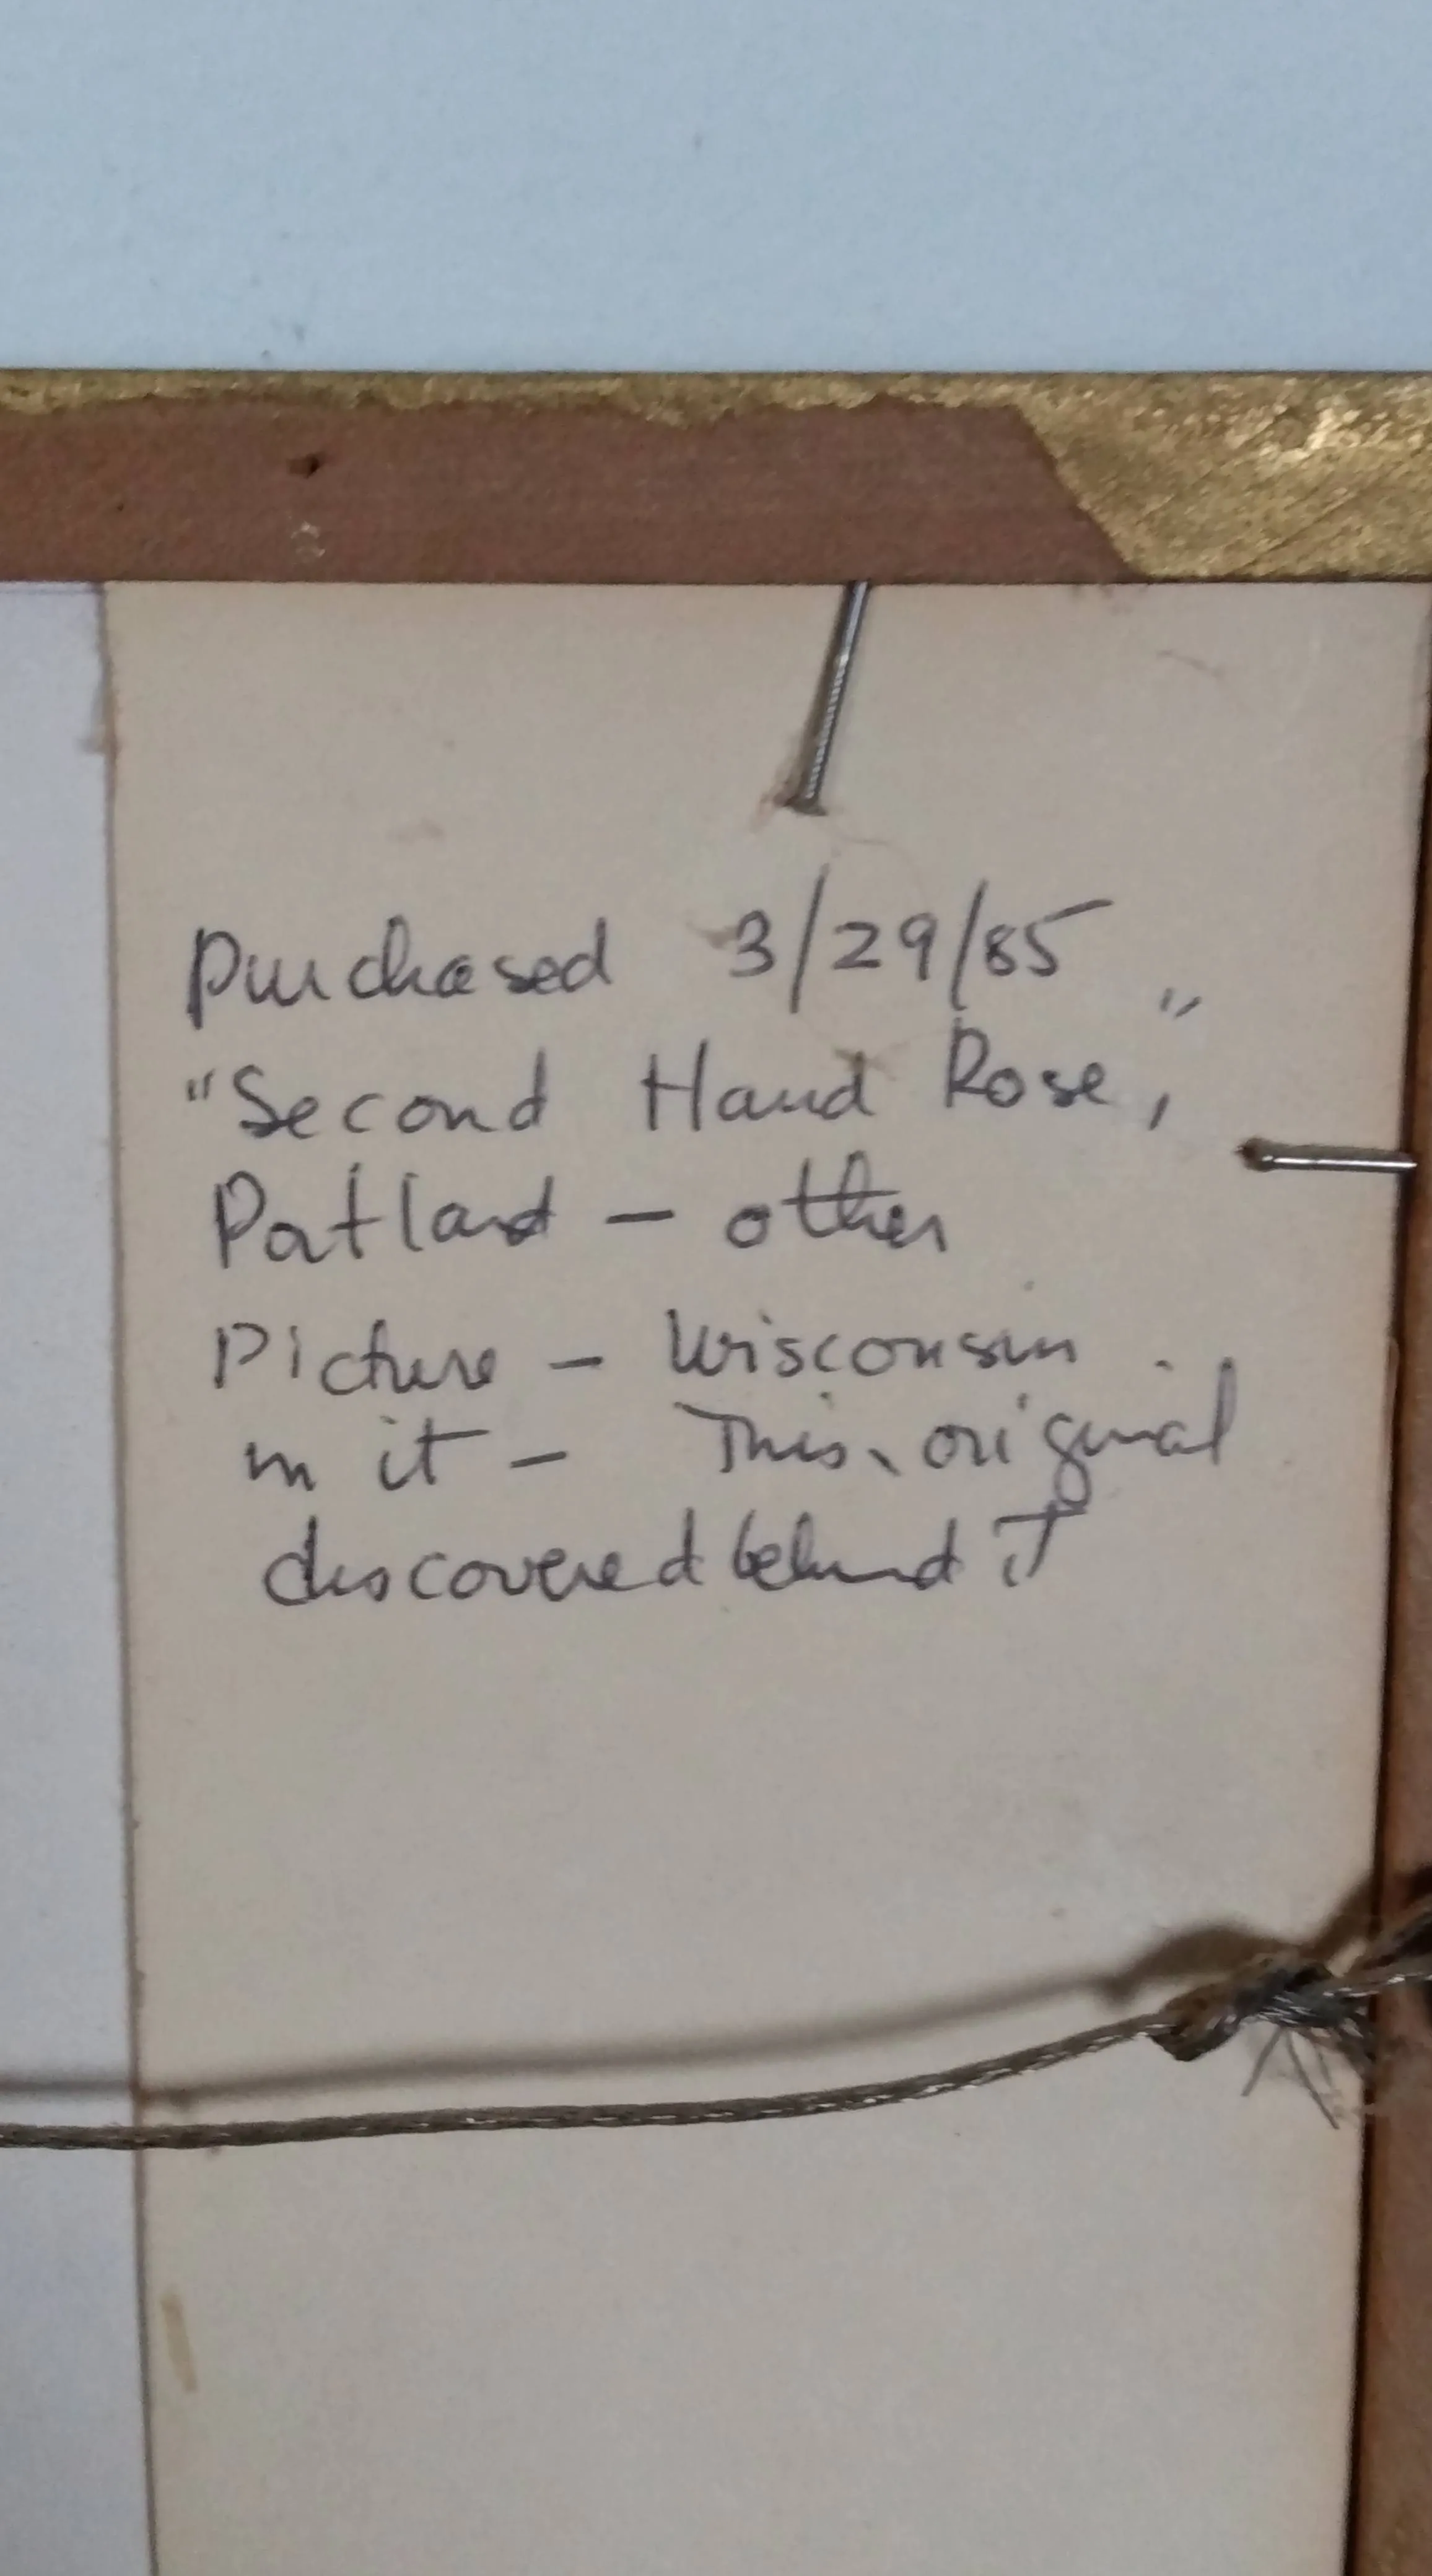 Purchased 3/29/85
"Second Hand Rose,"
Portland - other
Picture - Wisconsin
in it - This, original
discovered behind it